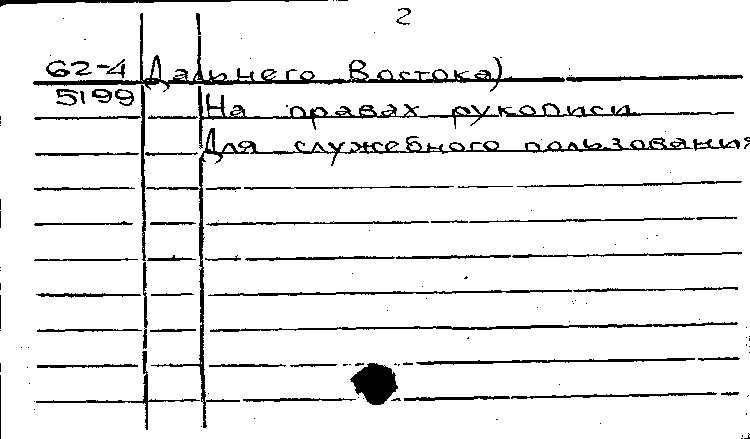 2
62-4 Дальнего Востока)
5199 На правах рукописи
Для служебного пользования